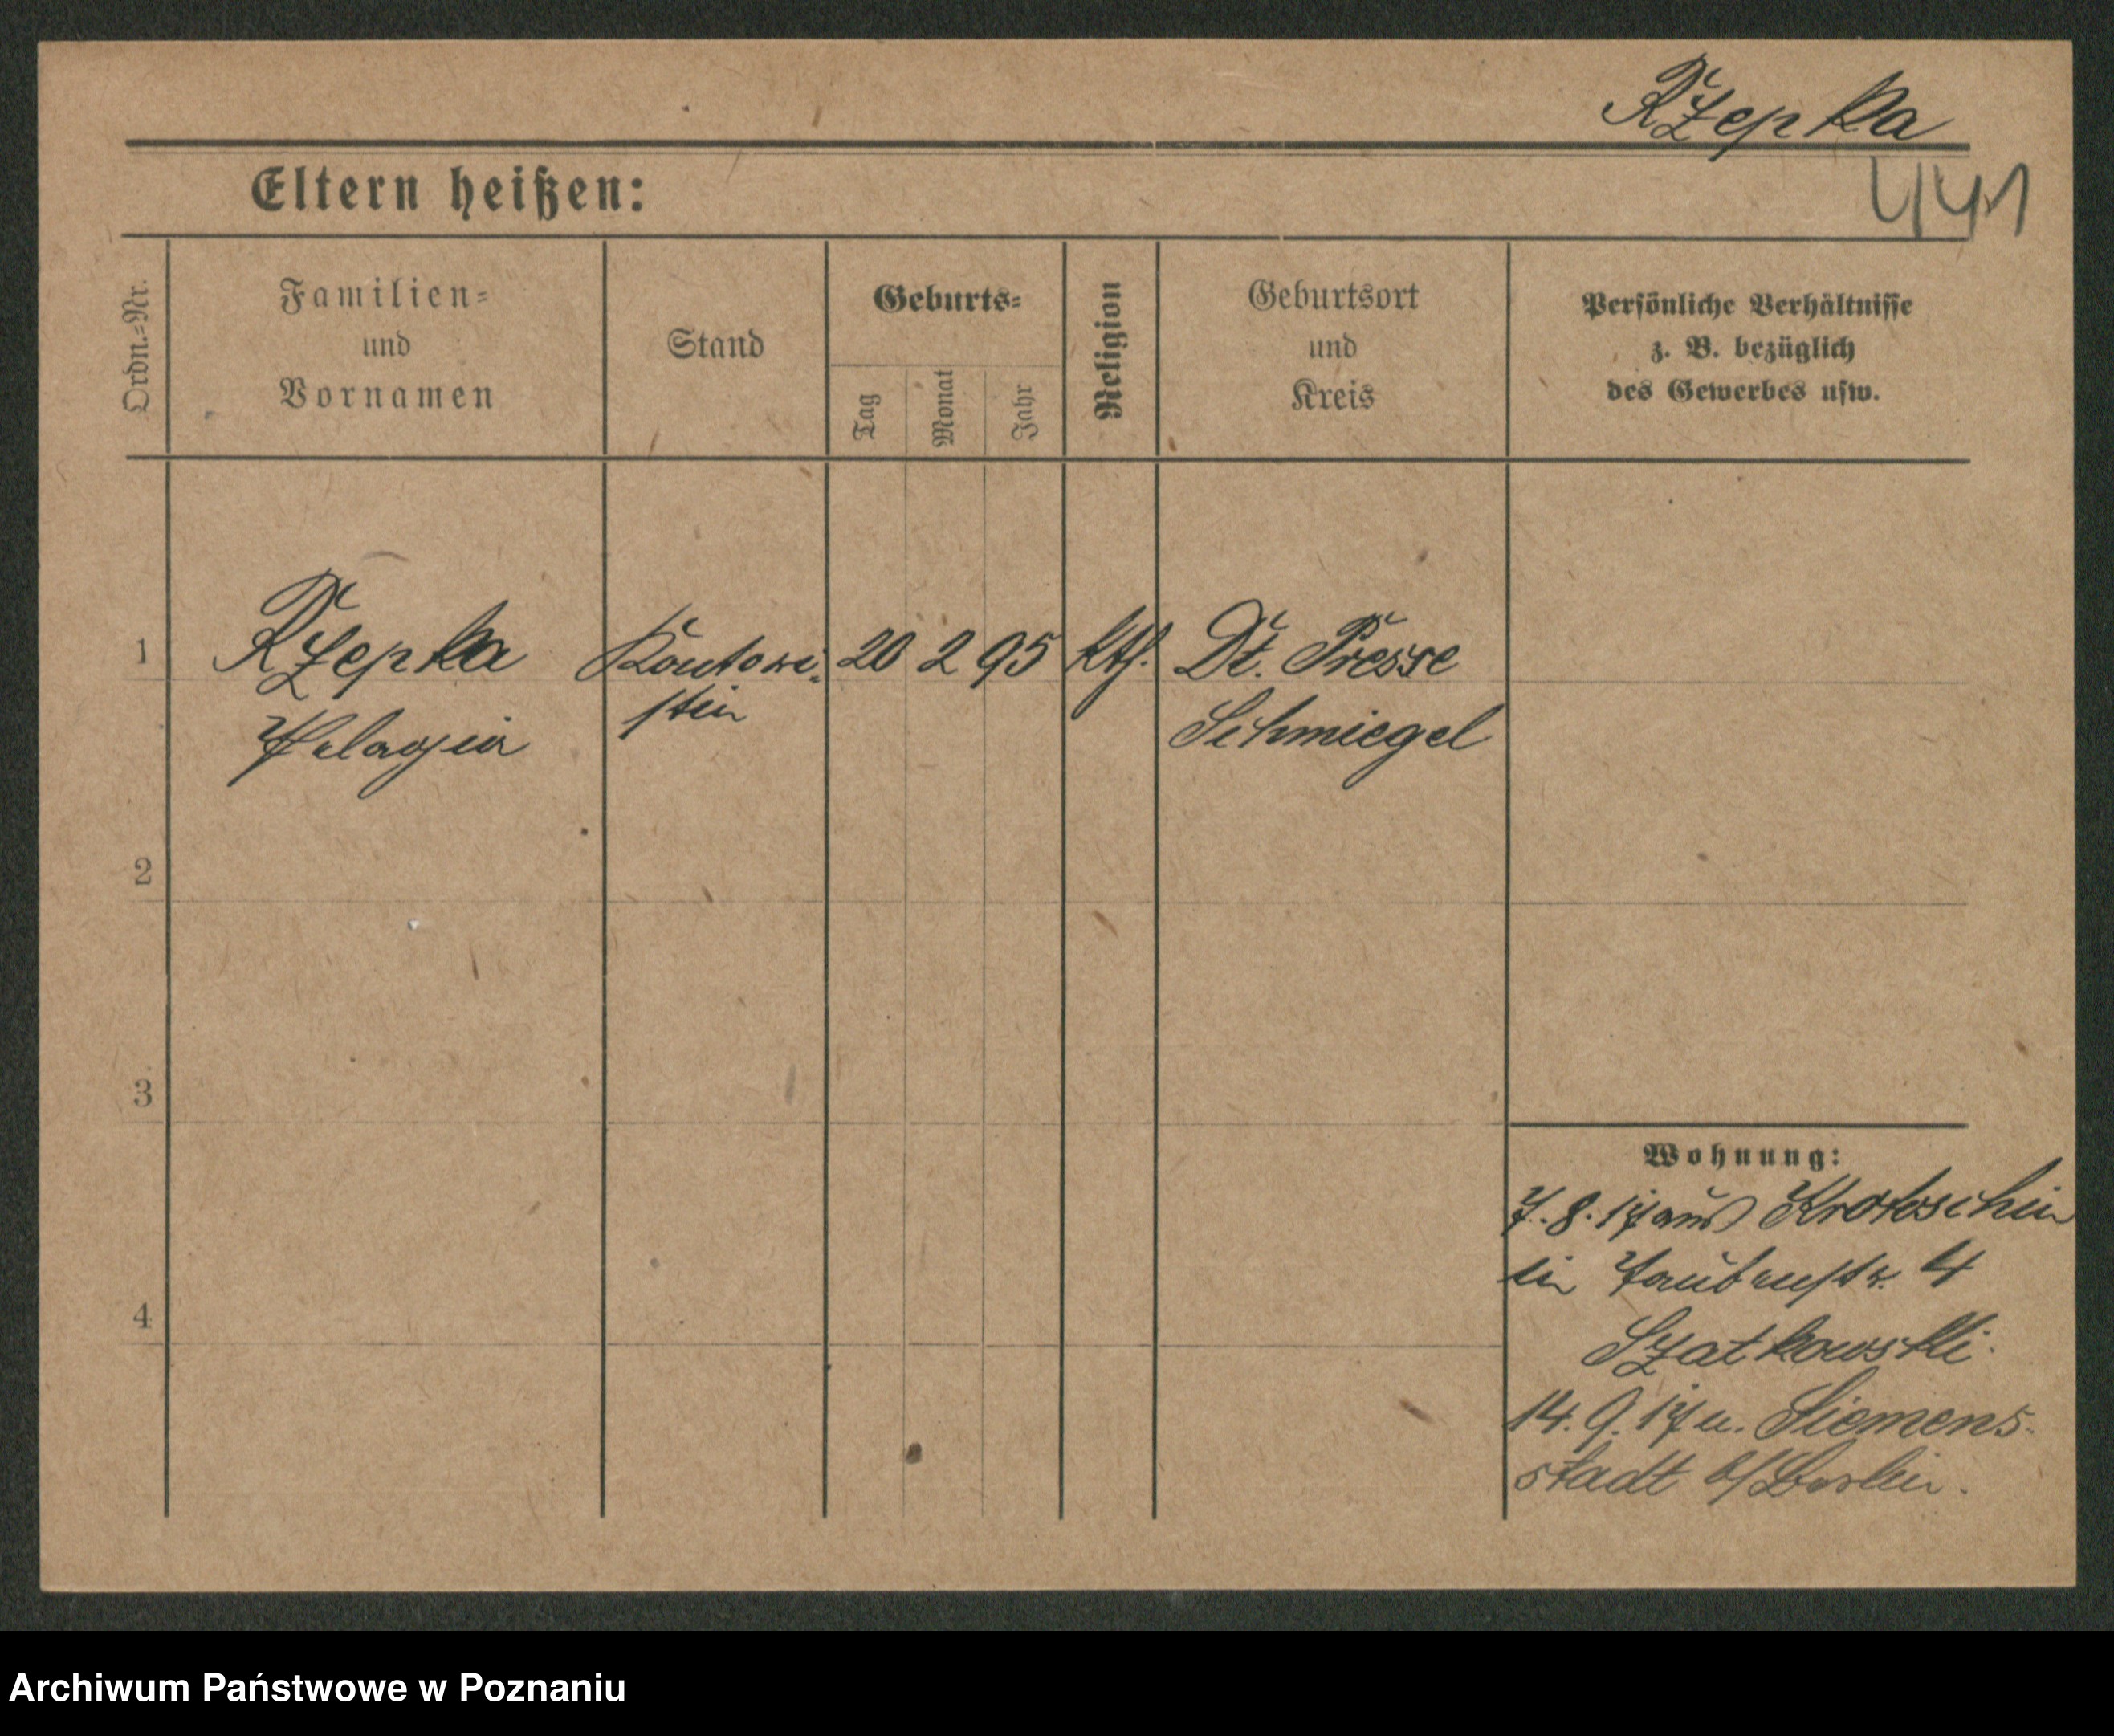 Rzepka
441
Eltern heißen:
Ordn.=Nr.
Familien=
und
Vornamen
Stand
Geburts=
Tag
Monat
Jahr
Religion
Geburtsort
und
Kreis
Persönliche Verhältnisse
z. B. bezüglich
des Gewerbes usw.
1
Rzepka
Kontori=
20 2 95
kth.
Dt. Presse
Pelagia
stin
Schmiegel
2
3
4
Wohnung:
7. 8. 17 aus Krotoschin
in Taubenstr. 4
Szatkowski.
14. 9. 17 n. Siemens-
stadt b/Berlin.
Archiwum Państwowe w Poznaniu